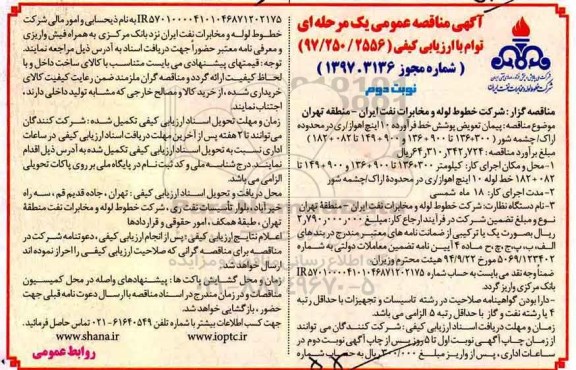 آگهی مناقصه عمومی یک مرحله ای
توام با ارزیابی کیفی (۹۷/۲۵۰/۲۵۵۶)
( شماره مجوز ۱۳۹۷.۳۱۳۶ )
نوبت دوم
شرکت خطوط لوله و مخابرات نفت ایران
مناقصه گزار: شرکت خطوط لوله و مخابرات نفت ایران - منطقه تهران
موضوع مناقصه: پیمان تعویض پوشش خط فرآورده ۱۰ اینچ اهواز/ری در محدوده
اراک/چشمه شور (۳۰۰+۱۳۶ تا ۹۰۰+۱۳۶ و ۹۰۰+۱۴۹ تا ۰۸۲+۱۸۲)
مبلغ برآورد مناقصه: ۶۴,۳۱۰,۳۴۲,۷۲۴ ریال
۱- محل و مکان اجرای کار: کیلومتر ۳۰۰+۱۳۶ تا ۹۰۰+۱۳۶ و ۹۰۰+۱۴۹ تا
۰۸۲+۱۸۲ خط لوله ۱۰ اینچ اهواز/ری در محدودۀ اراک/چشمه شور
۲- مدت اجرای کار: ۱۸ ماه شمسی
۳- نام دستگاه نظارت: شرکت خطوط لوله و مخابرات نفت ایران - منطقه تهران
نوع و مبلغ تضمین شرکت در فرآیند ارجاع کار: مبلغ ۲,۷۹۰,۰۰۰,۰۰۰
ریال بصورت یک یا ترکیبی از ضمانت نامه های معتبر مندرج در بندهای
الف، ب، پ، ج، چ، ح ماده ۴ آیین نامه تضمین معاملات دولتی به شماره
۱۲۳۴۰۲/ت۵۰۶۹ مورخ ۹۴/۹/۲۲ هیئت محترم وزیران
ضمناً وجه نقد می بایست به حساب شماره IR۵۷۰۱۰۰۰۰۴۱۰۱۰۴۶۸۷۱۲۰۲۱۷۵
بانک مرکزی واریز گردد.
-دارا بودن گواهینامه صلاحیت در رشته تاسیسات و تجهیزات با حداقل رتبه
۴ یا رشته نفت و گاز با حداقل رتبه ۵ الزامی می باشد.
زمان و مهلت دریافت اسناد ارزیابی کیفی: شرکت کنندگان می توانند
از زمان چاپ آگهی نوبت اول تا ۵ روز پس از چاپ آگهی نوبت دوم در
ساعات اداری، پس از واریز مبلغ ۳۰۰/۰۰۰ ریال به حساب شماره
IR۵۷۰۱۰۰۰۰۴۱۰۱۰۴۶۸۷۱۲۰۲۱۷۵ به نام ذیحسابی و امور مالی شرکت
خطوط لوله و مخابرات نفت ایران نزد بانک مرکزی به همراه فیش واریزی
و معرفی نامه معتبر حضوراً جهت دریافت اسناد به آدرس ذیل مراجعه نمایند.
توجه: قیمتهای پیشنهادی می بایست متناسب با کالای ساخت داخل و با
لحاظ کیفیت ارائه گردد و مناقصه گران ملزمند ضمن رعایت کیفیت کالای
خریداری شده، از خرید کالا و مصالح خارجی که مشابه تولید داخلی دارند،
اجتناب نمایند.
زمان و مهلت تحویل اسناد ارزیابی کیفی تکمیل شده: شرکت کنندگان
می توانند تا ۲ هفته پس از آخرین مهلت دریافت اسناد ارزیابی کیفی در ساعات
اداری نسبت به تحویل اسناد ارزیابی کیفی تکمیل شده به آدرس ذیل اقدام
نمایند. درج شناسه ملی و کد ثبت نام در پایگاه ملی بر روی پاکات تحویلی
الزامی می باشد.
محل دریافت و تحویل اسناد ارزیابی کیفی: تهران، جاده قدیم قم، سه راه
خیرآباد، بلوار تأسیسات نفت ری، شرکت خطوط لوله و مخابرات نفت منطقۀ
تهران، طبقه همکف، امور حقوقی و قراردادها
اعلام نتایج ارزیابی کیفی: پس از انجام ارزیابی کیفی، دعوتنامه شرکت در
مناقصه برای مناقصه گرانی که صلاحیت ارزیابی کیفی را احراز نموده اند
ارسال خواهد شد.
زمان و محل گشایش پاکت ها: پیشنهادهای واصله در محل کمیسیون
مناقصات و در زمان مندرج در اسناد مناقصه با ارسال دعوت نامه قبلی جهت
حضور، بازگشایی خواهد شد.
جهت کسب اطلاعات بیشتر با شماره تلفن ۶۱۶۴۰۵۴۹-۰۲۱ تماس حاصل فرمائید.
www.shana.ir www.ioptc.ir
روابط عمومی